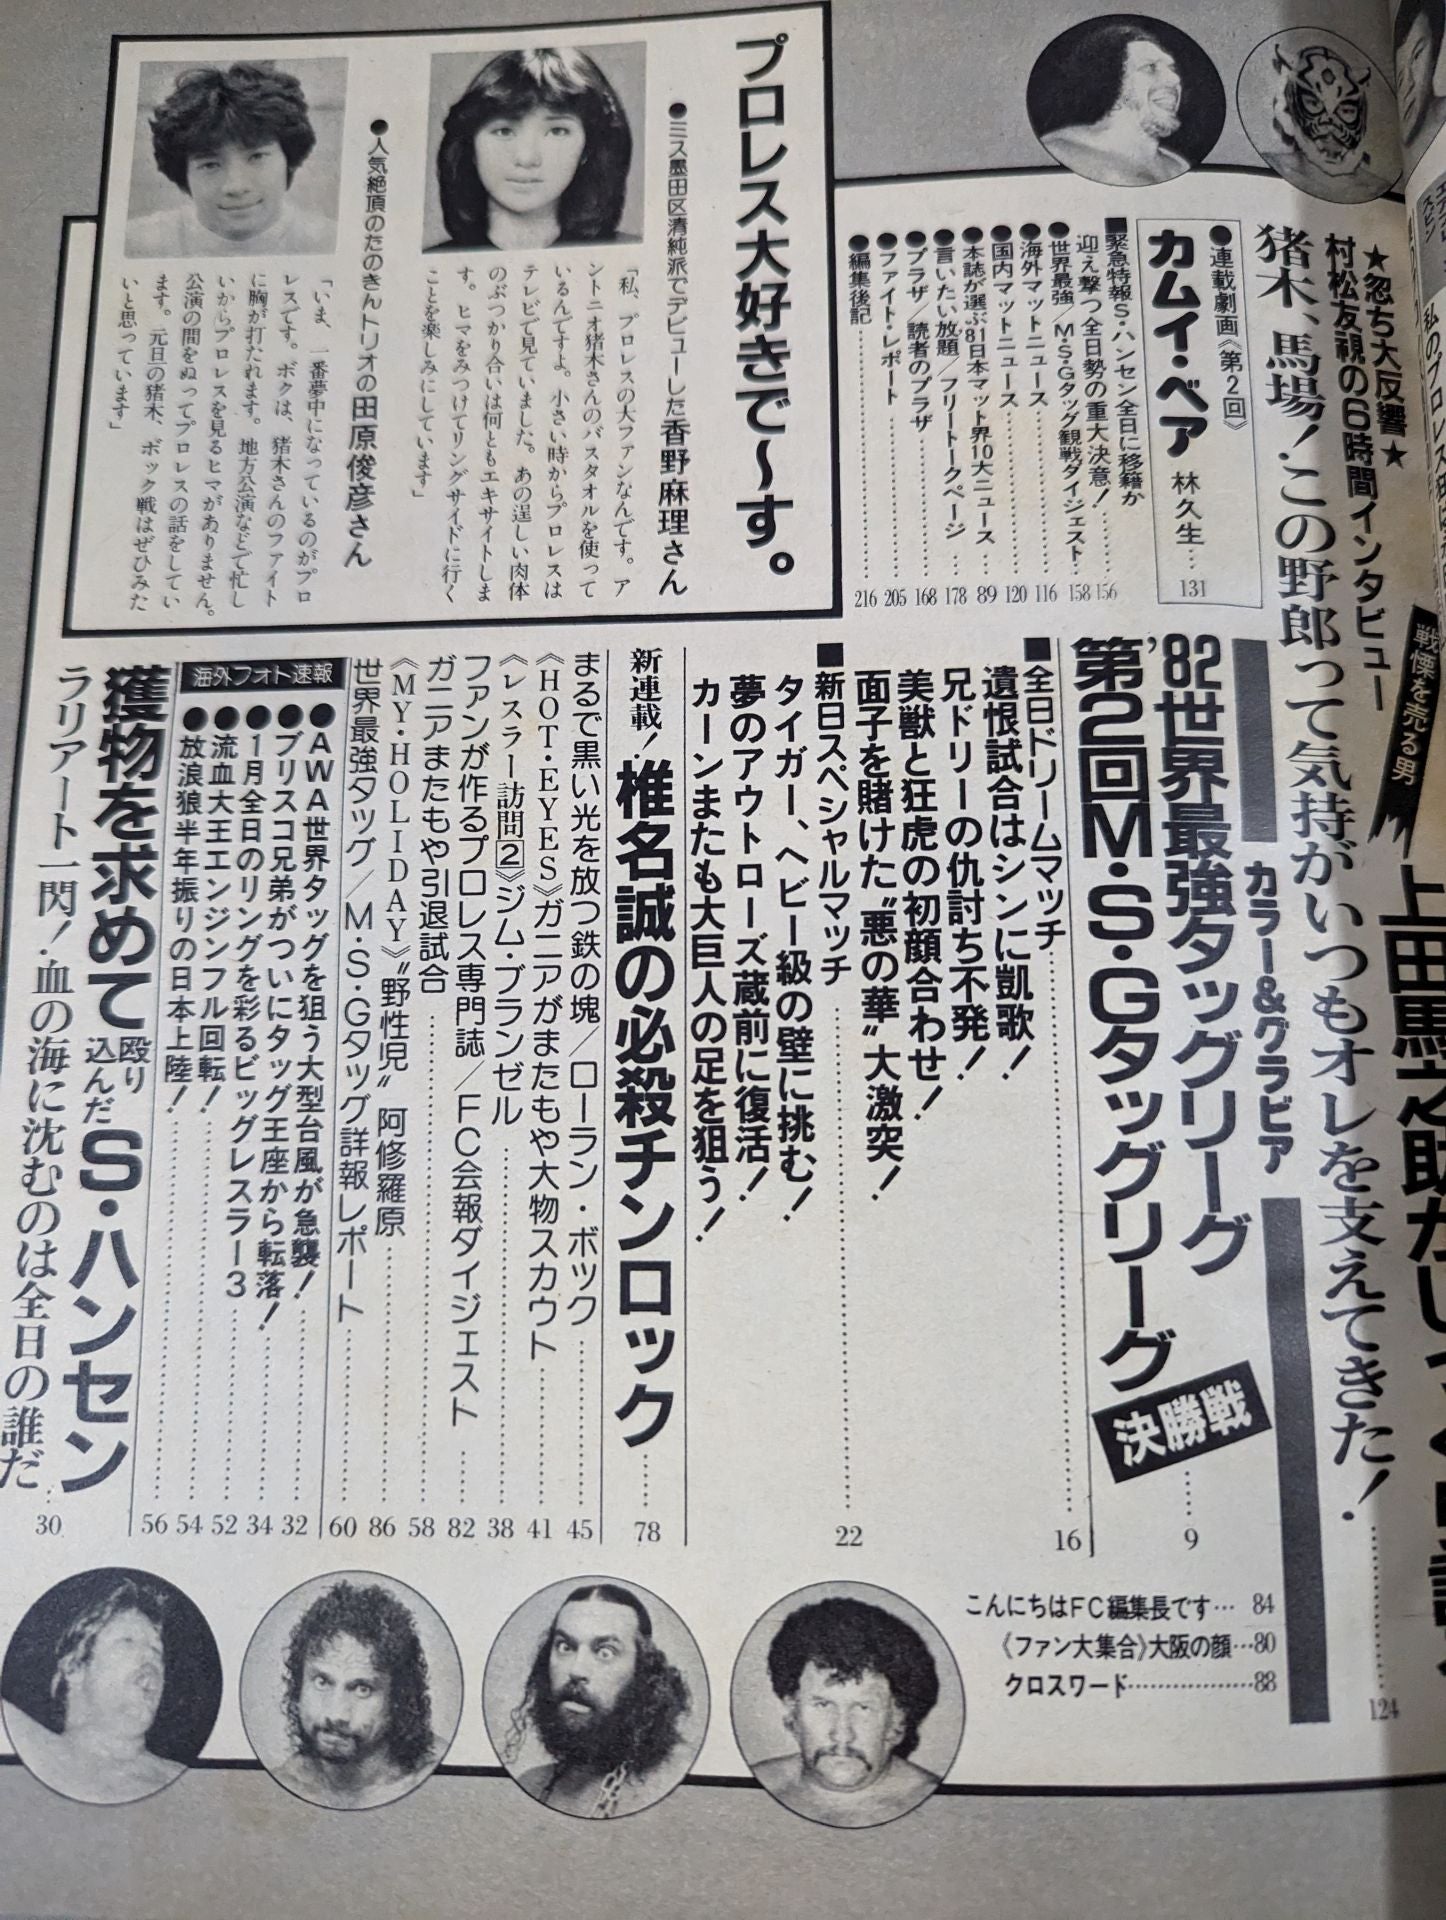 ★忽ち大反響★
村松友視の6時間インタビュー
猪木、馬場！この野郎って気持がいつもオレを支えてきた！
124
戦慄を売る男
●連載劇画《第2回》
カムイ・ベア 林久生…131
■緊急特報S・ハンセン全日に移籍か
迎え撃つ全日勢の重大決意！…156
●世界最強／M・S・Gタッグ観戦ダイジェスト…158
●海外マットニュース…116
●国内マットニュース…120
●本誌が選ぶ'81日本マット界10大ニュース…89
●言いたい放題／フリートークページ…178
●プラザ／読者のプラザ…168
●ファイト・レポート…205
●編集後記…216
プロレス大好きで〜す。
●ミス墨田区清純派でデビューした香野麻理さん
「私、プロレスの大ファンなんです。ア
ントニオ猪木さんのバスタオルを使って
いるんですよ。小さい時からプロレスは
テレビで見ていました。あの逞しい肉体
のぶつかり合いは何ともエキサイトしま
す。ヒマをみつけてリングサイドに行く
ことを楽しみにしています」
●人気絶頂のたのきんトリオの田原俊彦さん
「いま、一番夢中になっているのがプロ
レスです。ボクは、猪木さんのファイト
に胸が打たれます。地方公演などで忙し
いからプロレスを見るヒマがありません。
公演の間をぬってプロレスの話をしてい
ます。元旦の猪木、ボック戦はぜひみた
いと思っています」
カラー&グラビア
'82世界最強タッグリーグ
第2回M・S・Gタッグリーグ
決勝戦
9
■全日ドリームマッチ…16
遺恨試合はシンに凱歌！
兄ドリーの仇討ち不発！
美獣と狂虎の初顔合わせ！
面子を賭けた“悪の華”大激突！
■新日スペシャルマッチ…22
タイガー、ヘビー級の壁に挑む！
夢のアウトローズ蔵前に復活！
カーンまたも大巨人の足を狙う！
新連載！椎名誠の必殺チンロック…78
まるで黒い光を放つ鉄の塊／ローラン・ボック…45
《HOT・EYES》ガニアがまたもや大物スカウト…41
《レスラー訪問2》ジム・ブランゼル…38
ファンが作るプロレス専門誌／FC会報ダイジェスト…82
ガニアまたもや引退試合…58
《MY・HOLIDAY》“野性児”阿修羅原…86
世界最強タッグ／M・S・Gタッグ詳報レポート…60
海外フォト速報
●AWA世界タッグを狙う大型台風が急襲！…32
●ブリスコ兄弟がついにタッグ王座から転落！…34
●1月全日のリングを彩るビッグレスラー3…52
●流血大王エンジンフル回転！…54
●放浪狼半年振りの日本上陸！…56
獲物を求めて殴り込んだS・ハンセン
ラリアート一閃！血の海に沈むのは全日の誰だ…30
こんにちはFC編集長です…84
《ファン大集合》大阪の顔…80
クロスワード…88